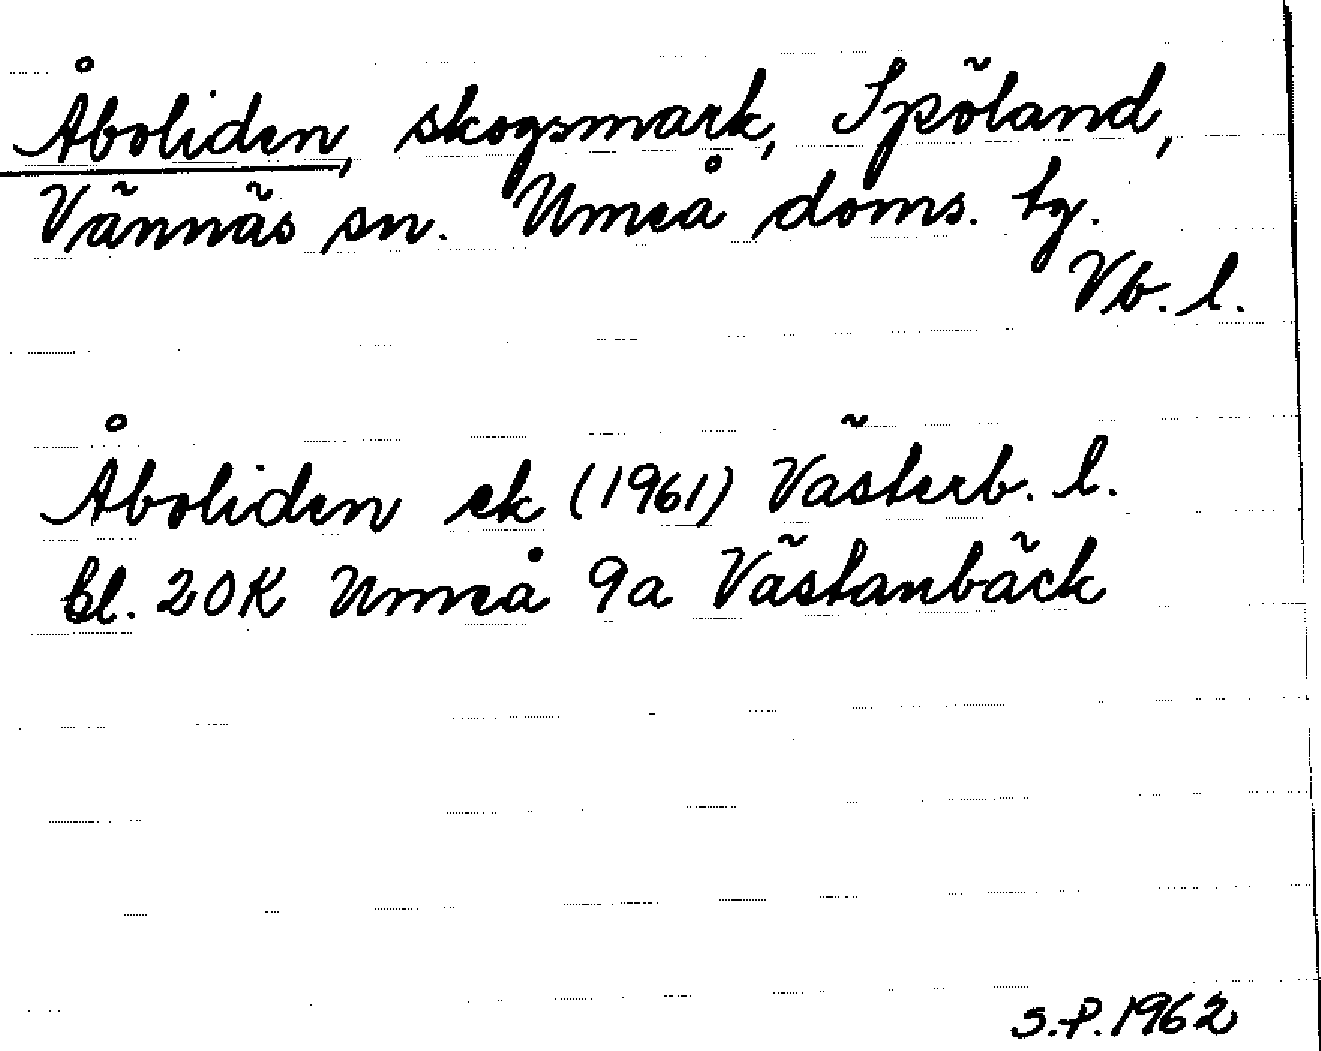 Åboliden, skogsmark, Spöland,
Vännäs sn. Umeå doms. tg.
Vb. l.
Åboliden ek (1961) Västerb. l.
bl. 20K Umeå 9a Västanbäck
S.P. 1962